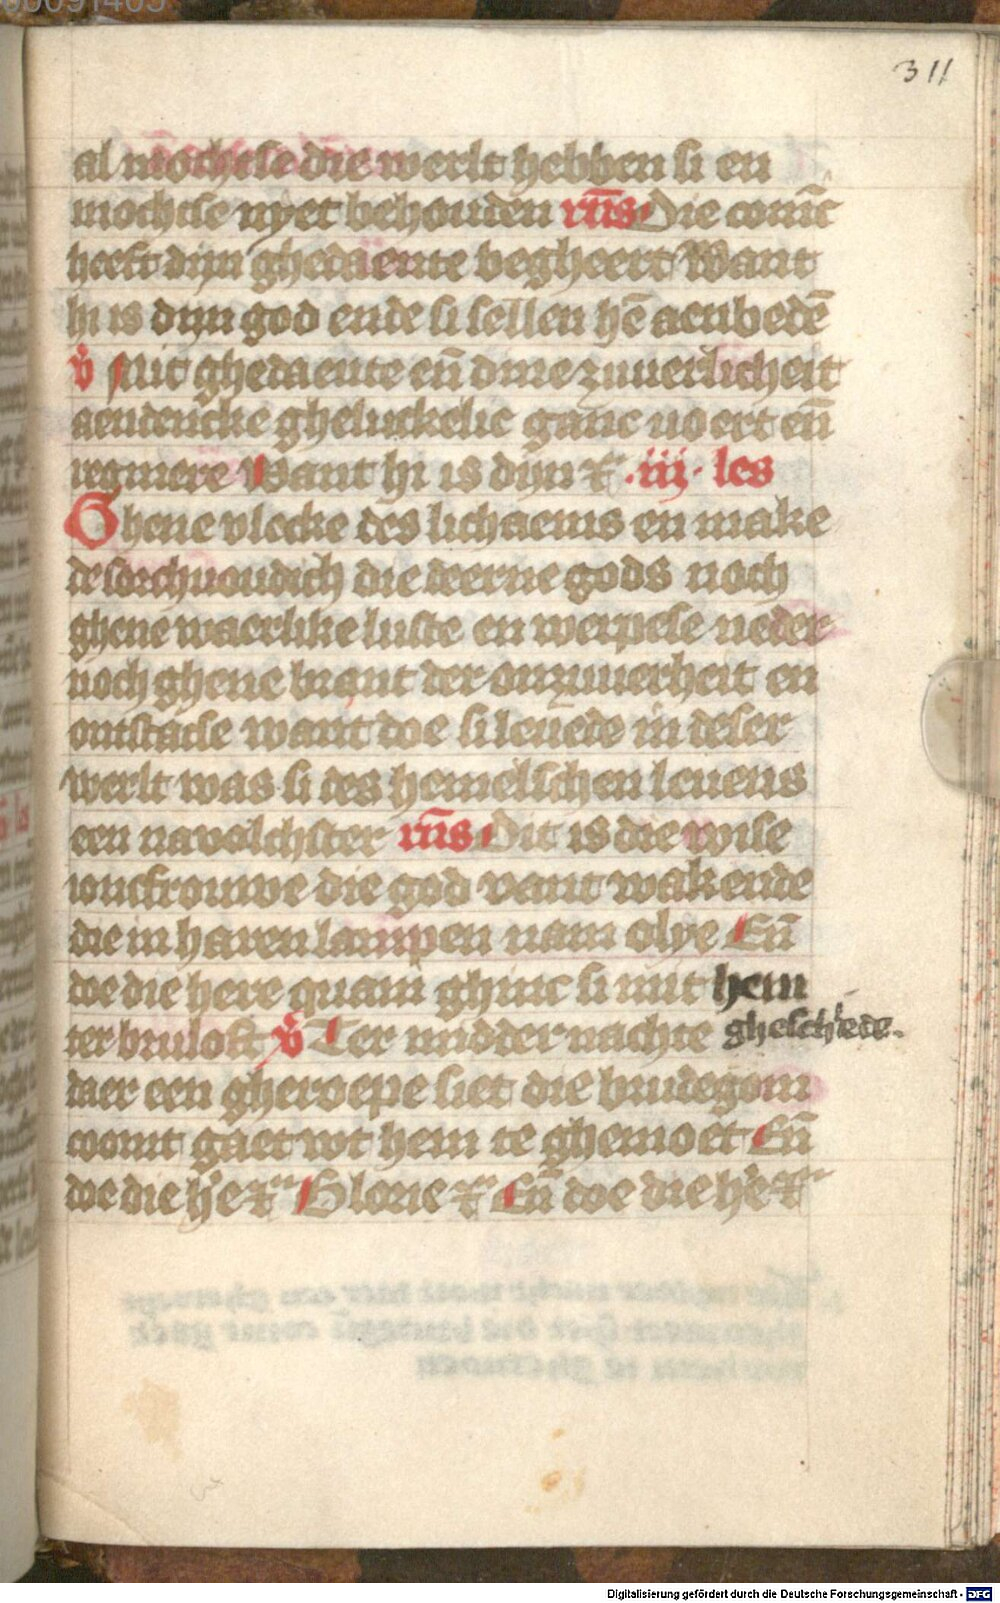 311
al mochtse die werlt hebben si en
mochtse nyet behouden rn̄s Die coninc̄
heeft dijn ghedaente begheert Want
hi is dijn god ende si sellen hē aenbedē
v̄ Mit ghedaente en̄ dijnre zuuerlicheit
aendencke gheluckelic ganc voert en̄
regniere Want hi is dijn &c .iij. les
Ghene vlecke des lichaems en make
de sorchuoudich die deerne gods noch
ghene waerlike luste en werpese neder
noch ghene brant der onzuuerheit en
ontstacse want doe si leuede in deser
werlt was si des hemelschen leuens
een navolchster rn̄s Dit is die wise
ioncfrouwe die god vant wakende
die in haren lampen nam olye En̄
doe die here quam ghinc si mit hem
ter bruloft v̄ Ter midder nachte gheschiede
daer een gheroepe siet die brudegom
comt gaet wt hem te ghemoet En̄
doe die h'e &c Glorie &c En̄ doe die h'e &c
Digitalisierung gefördert durch die Deutsche Forschungsgemeinschaft - DFG